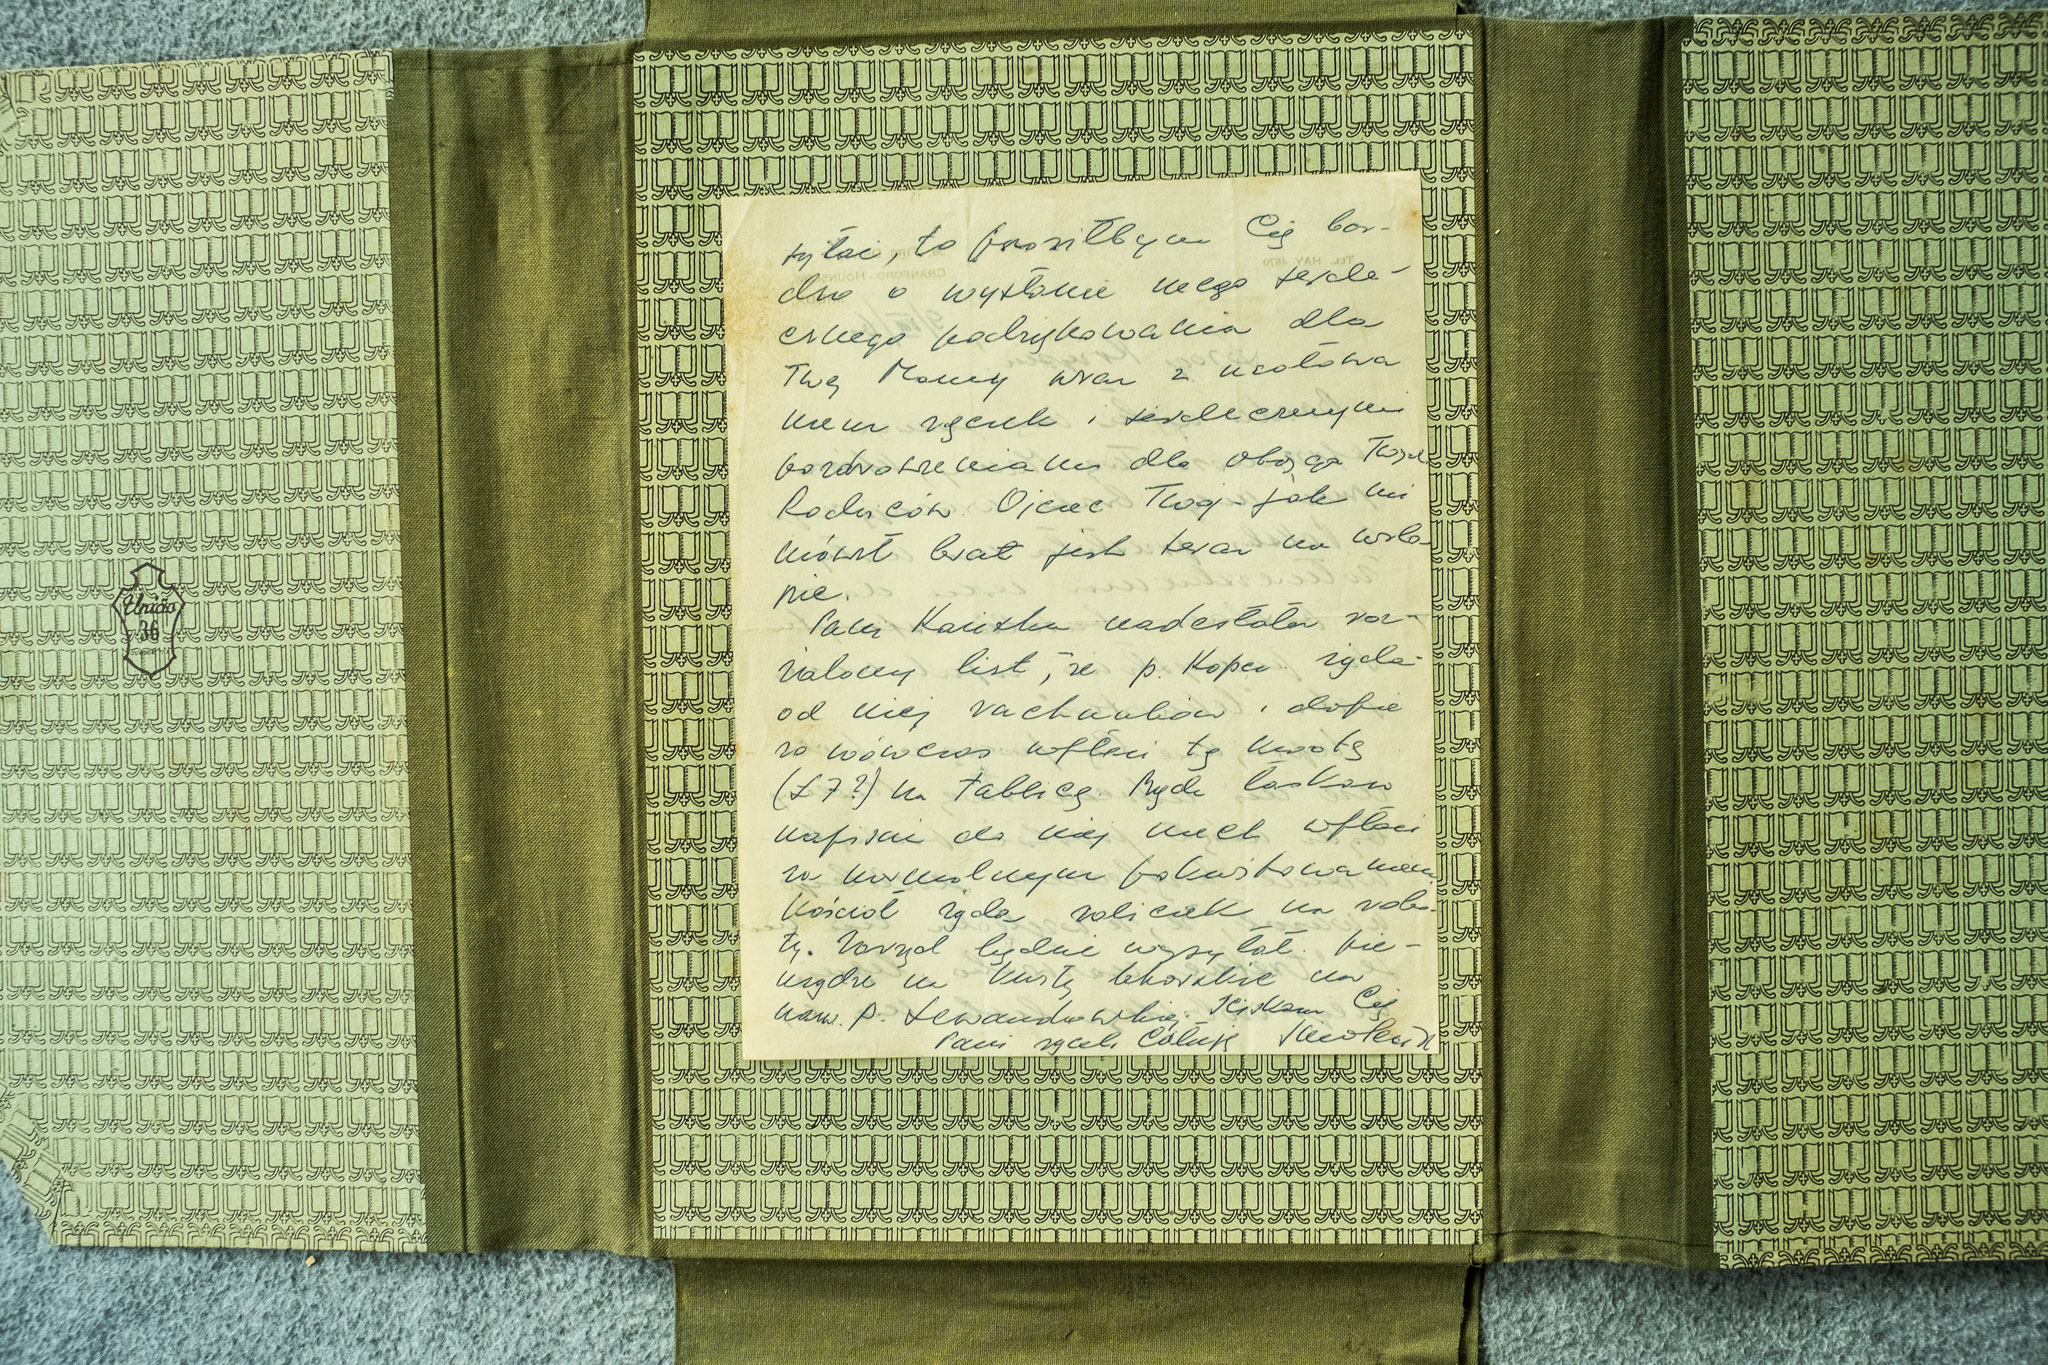 União
36
syłać, to prosiłbym Cię bar-
dzo o wysłanie mego serde-
cznego podziękowania dla
Twej Mamy wraz z ucałowa
niem rączek i serdecznymi
pozdrowieniami dla obojga Twych
Rodziców. Ojciec Twój - jak mi
mówił brat jest teraz na
nie.
Pani nadesłała roz-
list, że p. Kopeć żąda
od niej rachunków i dopie
ro wówczas wpłaci tę kwotę
(£7?) na Tablicę. Bądź łaskaw
napisać do niej niech wpłaci
za normalnym pokwitowaniem
Kościół żąda zaliczek na robo-
ty. Zarząd będzie wysyłał pie-
niądze na na
nazw. p. Lewandowskiej. Ściskam Cię
Pani rączki Całuję
TEL. HAY 4670
CRANFORD - HOUNSLOW